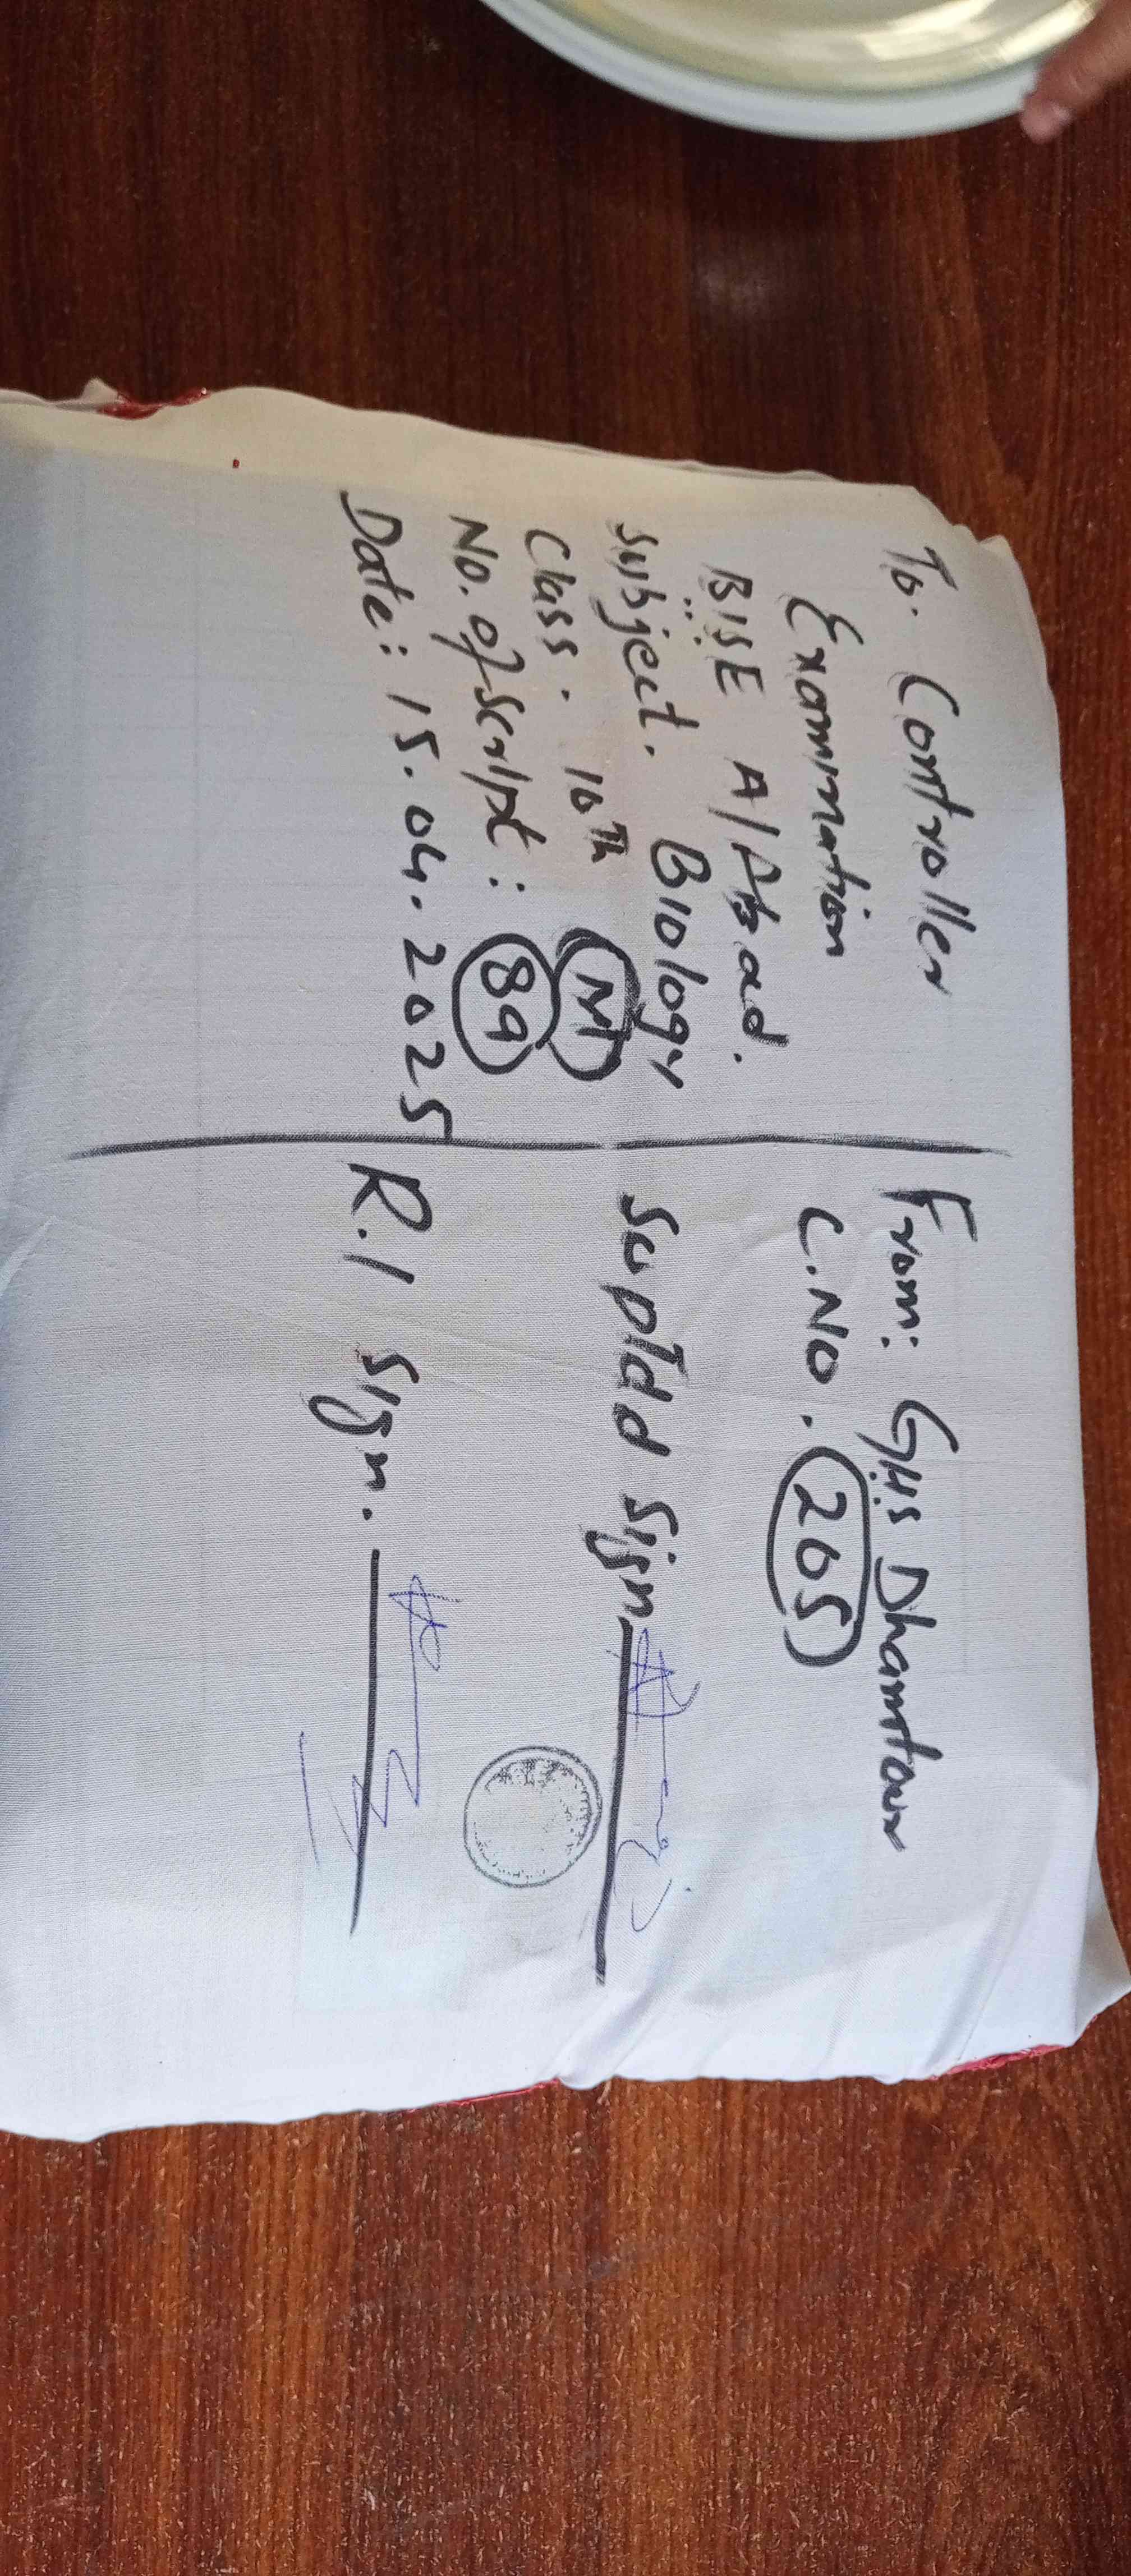 To. Controller
Examination
BISE A/Abad.
Subject. Biology
Class. 10Th (M)
No. of script: 89
Date: 15.04.2025
From: GHS Dhamtour
C.NO. 265
Suptdd Sign
R.I Sign.